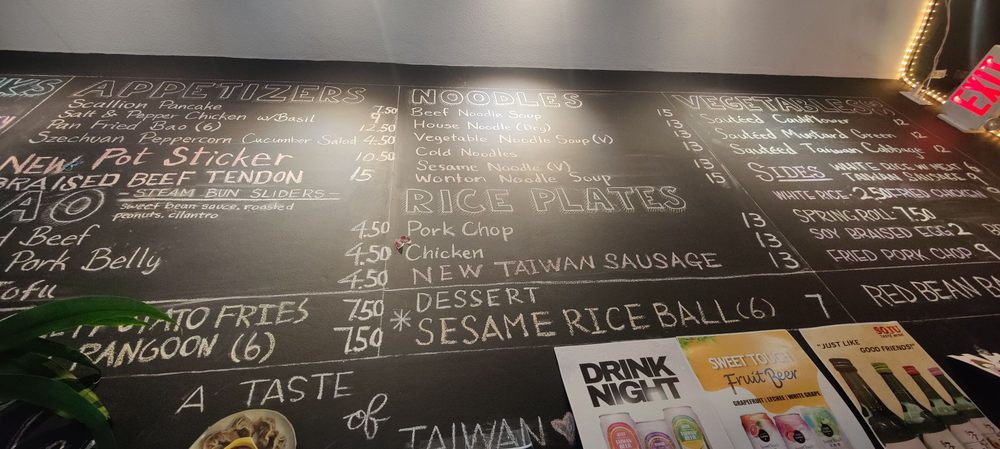 APPETIZERS
Scallion Pancake 7.50
Salt & Pepper Chicken w/Basil 9
Pan Fried Bao (6) 12.50
Szechuan Peppercorn Cucumber Salad 4.50
NEW Pot Sticker 10.50
BRAISED BEEF TENDON 15
BAO -STEAM BUN SLIDERS-
Sweet bean sauce, roasted
peanuts, cilantro
Beef 4.50
Pork Belly 4.50
Tofu 4.50
POTATO FRIES 7.50
RANGOON (6) 7.50
NOODLES
Beef Noodle Soup 15
House Noodle (Dry) 13
Vegetable Noodle Soup (V) 13
Cold Noodles
Sesame Noodle (V) 13
Wonton Noodle Soup 15
RICE PLATES
Pork Chop 13
Chicken 13
NEW TAIWAN SAUSAGE 13
DESSERT
*SESAME RICE BALL (6) 7
VEGETABLES
Sautéed Cauliflower 12
Sautéed Mustard Green 12
Sautéed Taiwan Cabbage 12
SIDES
TAIWAN SAUSAGE
WHITE RICE 2.50
SPRING ROLL 7.50
SOY BRAISED EGG 2
FRIED PORK CHOP 9
RED BEAN
A TASTE
of
TAIWAN
DRINK
NIGHT
SWEET TOUCH
Fruit Beer
GRAPEFRUIT | LYCHEE | WHITE GRAPE
SOJU
"JUST LIKE
GOOD FRIENDS!"
EXIT